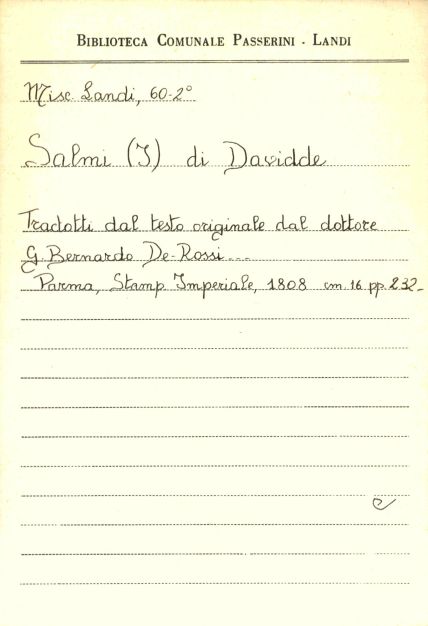 BIBLIOTECA COMUNALE PASSERINI - LANDI
Misc. Landi, 60-2°
Salmi (I) di Davidde
Tradotti dal testo originale dal dottore
G. Bernardo De-Rossi...
Parma, Stamp. Imperiale, 1808 cm. 16 pp. 232-